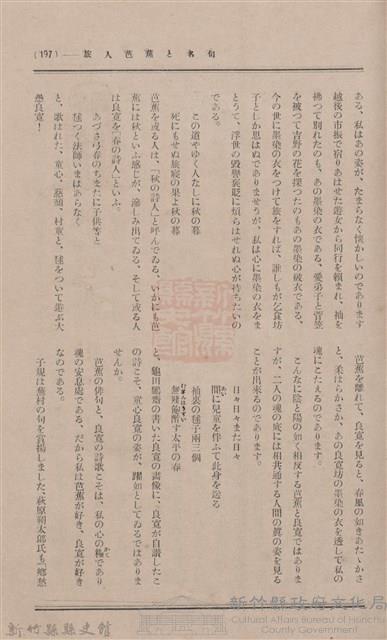 (197)——旅人芭蕉と名句
ある、私はあの姿が、たまらなく懐かしいのであります
越後の市振で宿りあはせた遊女から同行を頼まれ、袖を
拂つて別れたのも、あの墨染の衣である、愛弟子と菅笠
を被つて吉野の花を探つたのもあの墨染の破衣である、
今の世に墨染の衣をつけて旅をすれば、誰しもが乞食坊
子としか思はぬでありませうが、私は心に墨染の衣をま
とうて、浮世の毀譽褒貶に煩らはせれぬ心が持ちたいの
である。
この道やゆく人なしに秋の暮
死にもせぬ旅寝の果よ秋の暮
芭蕉を或る人は、「秋の詩人」と呼んでゐる、いかにも芭
蕉には秋といふ感じが、滲しみ出てゐる、そして或る人
は良寛を「春の詩人」といふ。
あづさ弓春のちまたに子供等と
毬つく法師いまはあらなく
と、歌はれた、童心、慈顔、村童と、毬をついて遊ぶ大
愚良寛！
芭蕉を離れて、良寛を見ると、春風の如きあたゝかさ
と、柔はらかさが、あの良寛坊の墨染の衣を透して私の
魂にこたえるのであります。
こんなに陰と陽の如く相反する芭蕉と良寛ではありま
すが、二人の魂の底には相共通する人間の眞の姿を見る
ことが出来るのであります。
日々日々また日々
間に兒童を伴ふて此身を送る
袖裏の毬子兩三個
無能飽酔す太平の春
と、龜田鵬齋の書いた良寛の畵像に、良寛が自讃したこ
の詩こそ、童心良寛の姿が、躍如としてゐるではありま
せんか。
芭蕉の俳句と、良寛の詩歌こそは、私の心の糧であり
魂の安息處である、だから私は芭蕉が好き、良寛が好き
なのである。
子規は蕪村の句を賞揚しました、萩原朔太郎氏も「郷愁
新竹縣縣史館
新竹縣政府文化局
Cultural Affairs Bureau of Hsinchu County Government